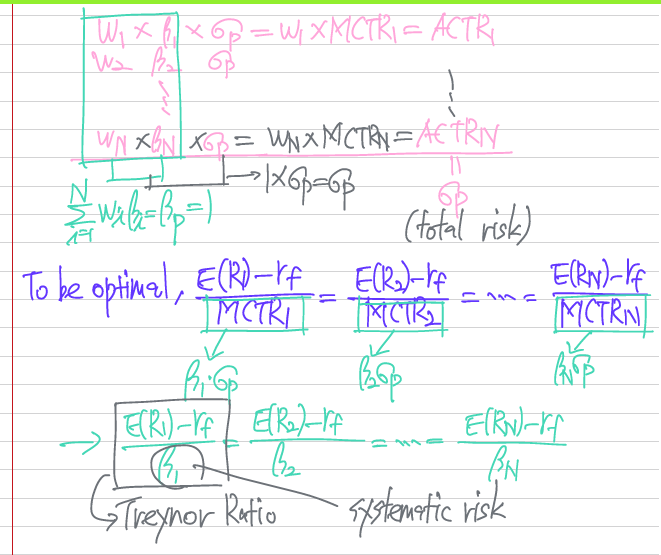 W₁ × β₁ × σp = W₁ × MCTR₁ = ACTR₁
W₂ β₂ σp
WN × βN × σp = WN × MCTRN = ACTRN
→ 1×σp = σp
||
σp
(total risk)
N
∑ Wiβi = βp = 1
i=1
To be optimal, E(R₁)-rf / MCTR₁ = E(R₂)-rf / MCTR₂ = ... = E(RN)-rf / MCTRN
β₁·σp β₂σp βNσp
→ E(R₁)-rf / β₁ = E(R₂)-rf / β₂ = ... = E(RN)-rf / βN
Treynor Ratio systematic risk